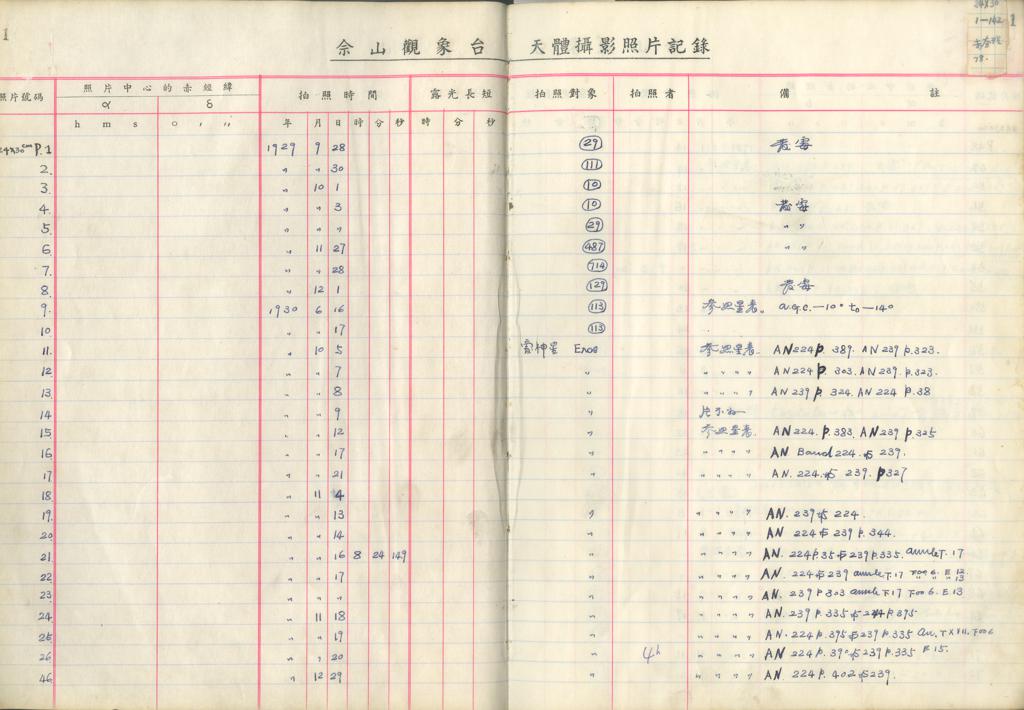 1
佘山觀象台 天體攝影照片記錄
24X30
1—142
78.
1
照片號碼 照片中心的赤經緯 拍照時間 露光長短 拍照對象 拍照者 備 註
α δ
h m s ○ ′ ″ 年 月 日 時 分 秒 時 分 秒
24X30cm P.1 1929 9 28 29
2. 〃 〃 30 111
3. 〃 10 1 10
4. 〃 〃 3 10
5. 〃 〃 〃 29 〃 〃
6. 〃 11 27 487 〃 〃
7. 〃 〃 28 714
8. 〃 12 1 129
9. 1930 6 16 113 參照星表。 a.g.c. —10° to —14°
10. 〃 〃 17 113
11. 〃 10 5 Eros 參照星表. AN 224 p. 389. AN 239 p.323.
12 〃 〃 7 〃 〃 〃 〃 〃 AN 224 p. 303. AN 239. p.323.
13. 〃 〃 8 〃 〃 〃 〃 〃 AN 239 p. 324. AN 224 p.38
14 〃 〃 9 〃
15. 〃 〃 12 〃 參照星表. AN 224. p. 383. AN 239 p.325
16 〃 〃 17 〃 〃 〃 〃 〃 AN Band 224. 239.
17 〃 〃 21 〃 〃 〃 〃 〃 AN. 224. 239. p327
18 〃 11 4
19. 〃 〃 13 〃 〃 〃 〃 〃 AN. 239 224.
20 〃 〃 14 〃 〃 〃 〃 〃 AN 224 239 p. 344.
21 〃 〃 16 8 24 149 〃 〃 〃 〃 〃 AN. 224 p.35 239 p.335. T. 17
22 〃 〃 17 〃 〃 〃 〃 〃 AN. 224 239 T.17 E 12. 13
23 〃 〃 〃 〃 〃 〃 〃 〃 AN. 239 p 303 T 17 E 13
24 〃 11 18 〃 〃 〃 〃 〃 AN. 239 p.335 p 395
25 〃 〃 19 〃 〃 〃 〃 〃 AN. 224 p.395 239 p.335
26 〃 〃 20 〃 4h 〃 〃 〃 〃 AN 224 p. 390 239 p.335 E 15.
46 〃 12 29 〃 〃 〃 〃 〃 AN 224 p. 402 239.